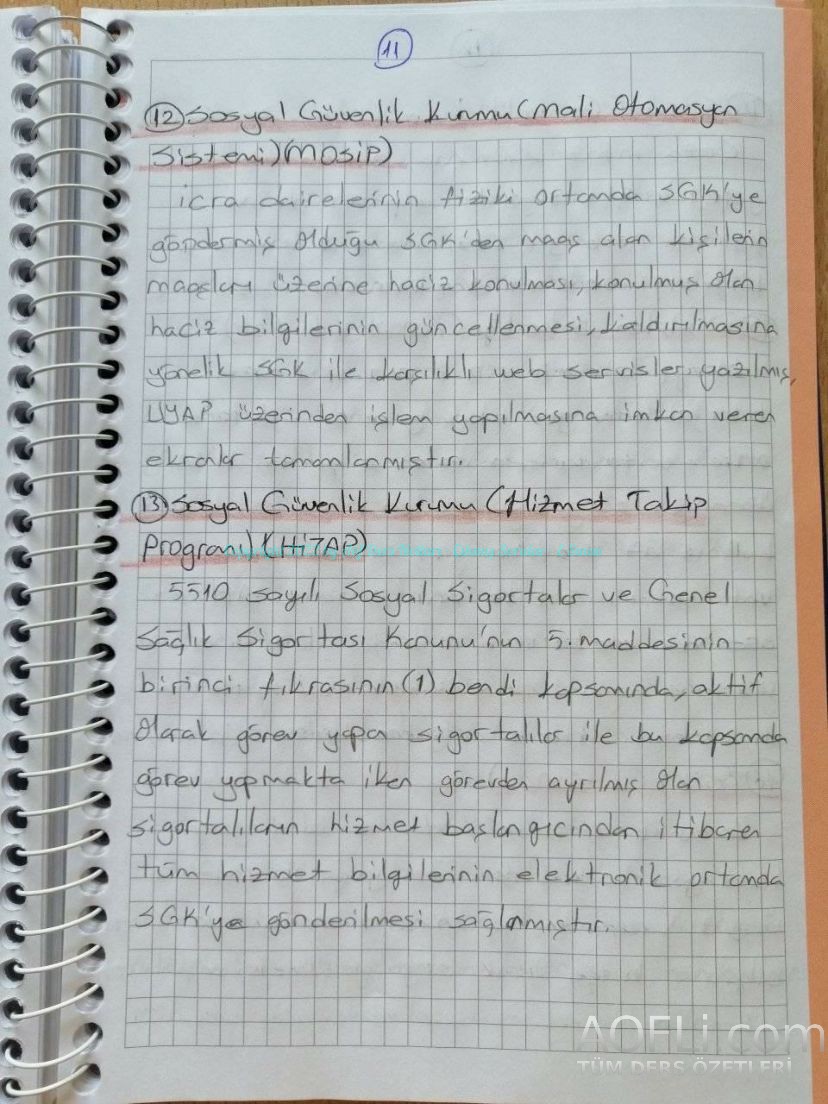 11
12 Sosyal Güvenlik Kurumu (Mali Otomasyon
Sistemi) (MOSİP)
İcra dairelerinin fiziki ortamda SGK'ye
göndermiş olduğu SGK'den maaş alan kişilerin
maaşları üzerine haciz konulması, konulmuş olan
haciz bilgilerinin güncellenmesi, kaldırılmasına
yönelik SGK ile karşılıklı web servisler yazılmış,
UYAP üzerinden işlem yapılmasına imkan veren
ekranlar tamamlanmıştır.
13 Sosyal Güvenlik Kurumu (Hizmet Takip
Programı) (HİTAP)
5510 sayılı Sosyal Sigortalar ve Genel
Sağlık Sigortası Kanunu'nun 5. maddesinin
birinci fıkrasının (1) bendi kapsamında, aktif
olarak görev yapa sigortalılar ile bu kapsamda
görev yapmakta iken görevden ayrılmış olan
sigortalıların hizmet başlangıcından itibaren
tüm hizmet bilgilerinin elektronik ortamda
SGK'ye gönderilmesi sağlanmıştır.
AOFLi.com
TÜM DERS ÖZETLERİ